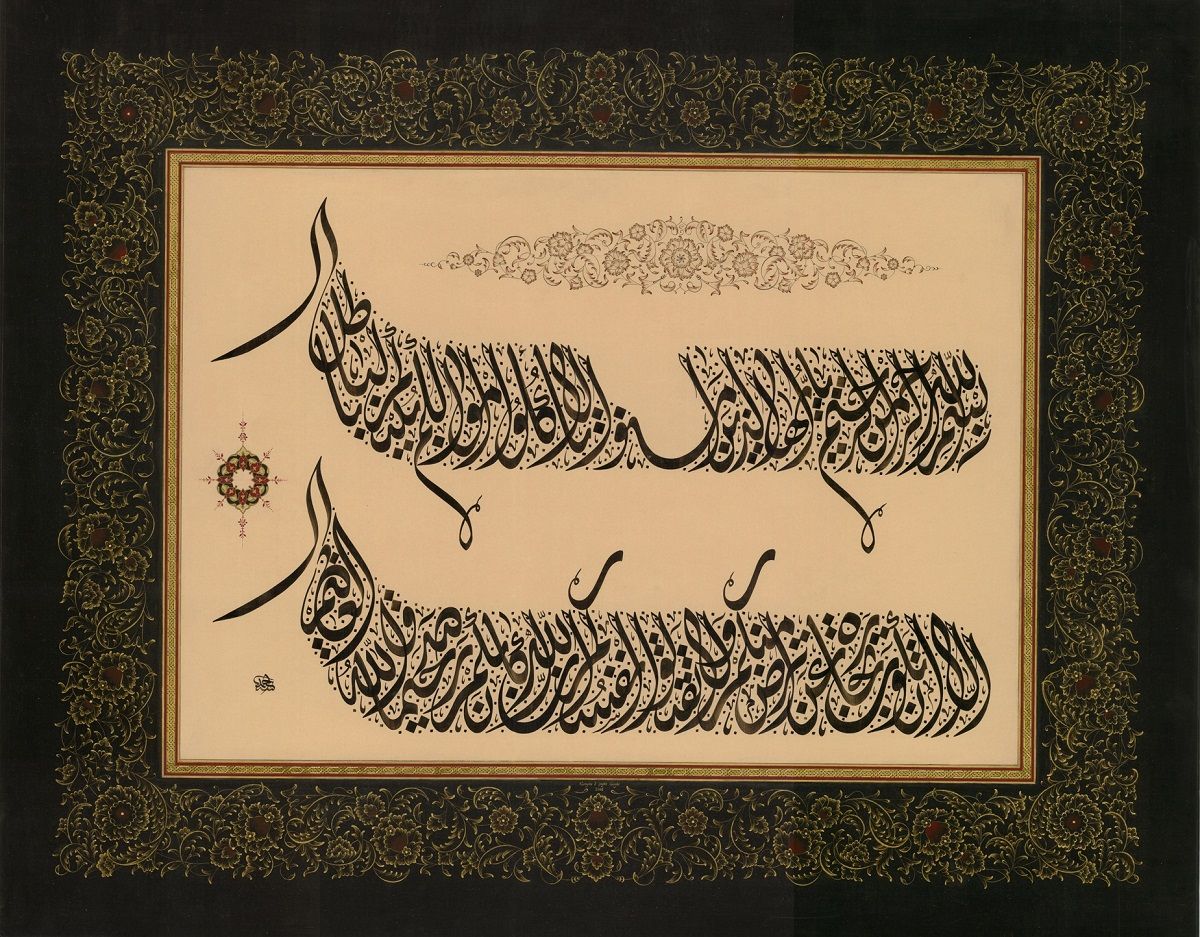 بسم الله الرحمن الرحيم يا أيها الذين آمنوا لا تأكلوا أموالكم بينكم بالباطل
إلا أن تكون تجارة عن تراض منكم ولا تقتلوا أنفسكم إن الله كان بكم رحيما صدق الله العظيم